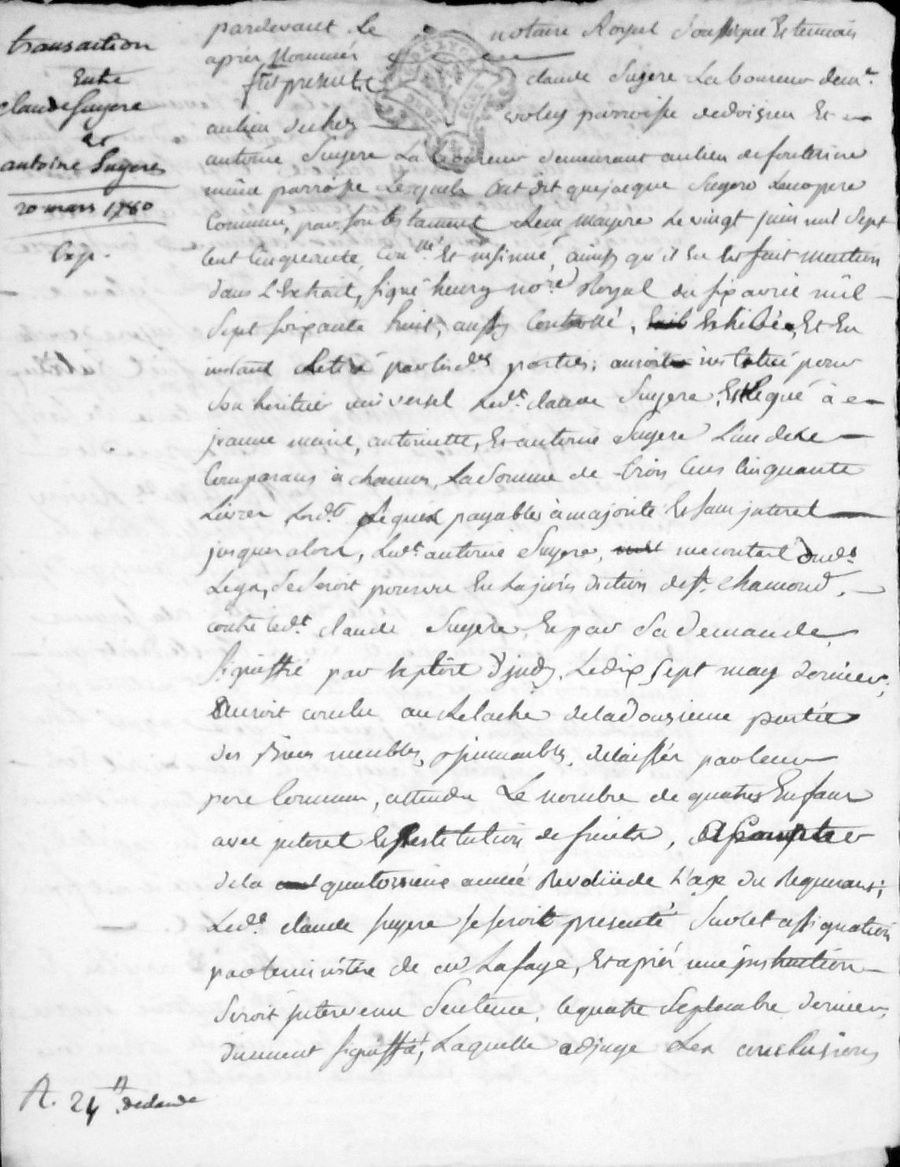 transaction
Entre
claude Suyere
et
antoine Suyere
20 mars 1780
Exp.
pardevant Le notaire Royal soussigné Et temoins
apres Nommés
fut present claude Suyere Laboureur dem.t
au lieu de parroisse de doisieu Et
antoine Suyere Laboureur demeurant au lieu de
meme parroisse Lesquels Ont dit que jacque Suyere Leur pere
Commun, par son testament Le vingt juin mil sept
cent cinquante con.llé Et insinué, ainsy qu'il En Est fait mention
dans L'Extrait, signé henry no.re Royal du six avril mil
Sept soixante huit, aussy Controllé, Exhibée, Et En
instant Retiré par les d.es parties; auroit institué pour
Son heritier universel Led.t claude Suyere, Et Legué à
jeanne marie, antoinette, Et antoine Suyere L'un des
Comparans à chacun, La Somme de trois Cens Cinquante
Livres Lesd.ts Legues payables à majorité Et sans interet
jusques alors, Led.t antoine Suyere, mecontent dud.t
Legs, Se seroit pourvu En La jurisdiction de st. chamond,
contre led.t claude Suyere, Et par Sa demande
Signiffié par Le dix sept may dernier,
auroit conclu au Relache de la dousieme partie
des Biens meubles, & immeubles, delaissés par leur
pere Commun, attendu Le nombre de quatres Enfans
avec interet Et Restitution de fruits, à compter
de la quatorsieme année Revoluë de L'age du Requerant;
Led.t claude Suyere se seroit presenté Sur Cet assignation
par le ministere de m.e Lafaye, Et après une instruction
Seroit intervenue Sentence, le quatre Septembre dernier,
duement signiffié, Laquelle adjuge Les conclusions
R. 24 tt declaude